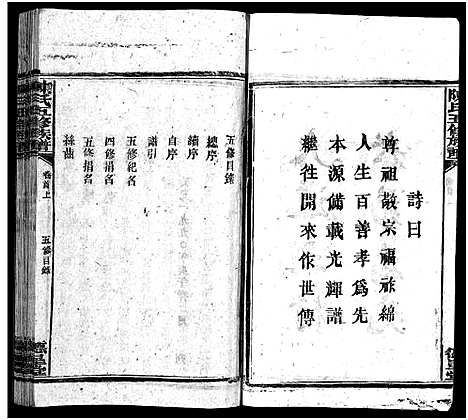 陳氏五修族譜
詩曰
尊祖敬宗福祚綿
人生百善孝為先
本源備載光輝譜
繼往開來作世傳
五修目錄
總序
續序
自序
譜引
五修紀名
四修捐名
五修捐名
絲曲
陳氏五修族譜
卷首上
五修目錄